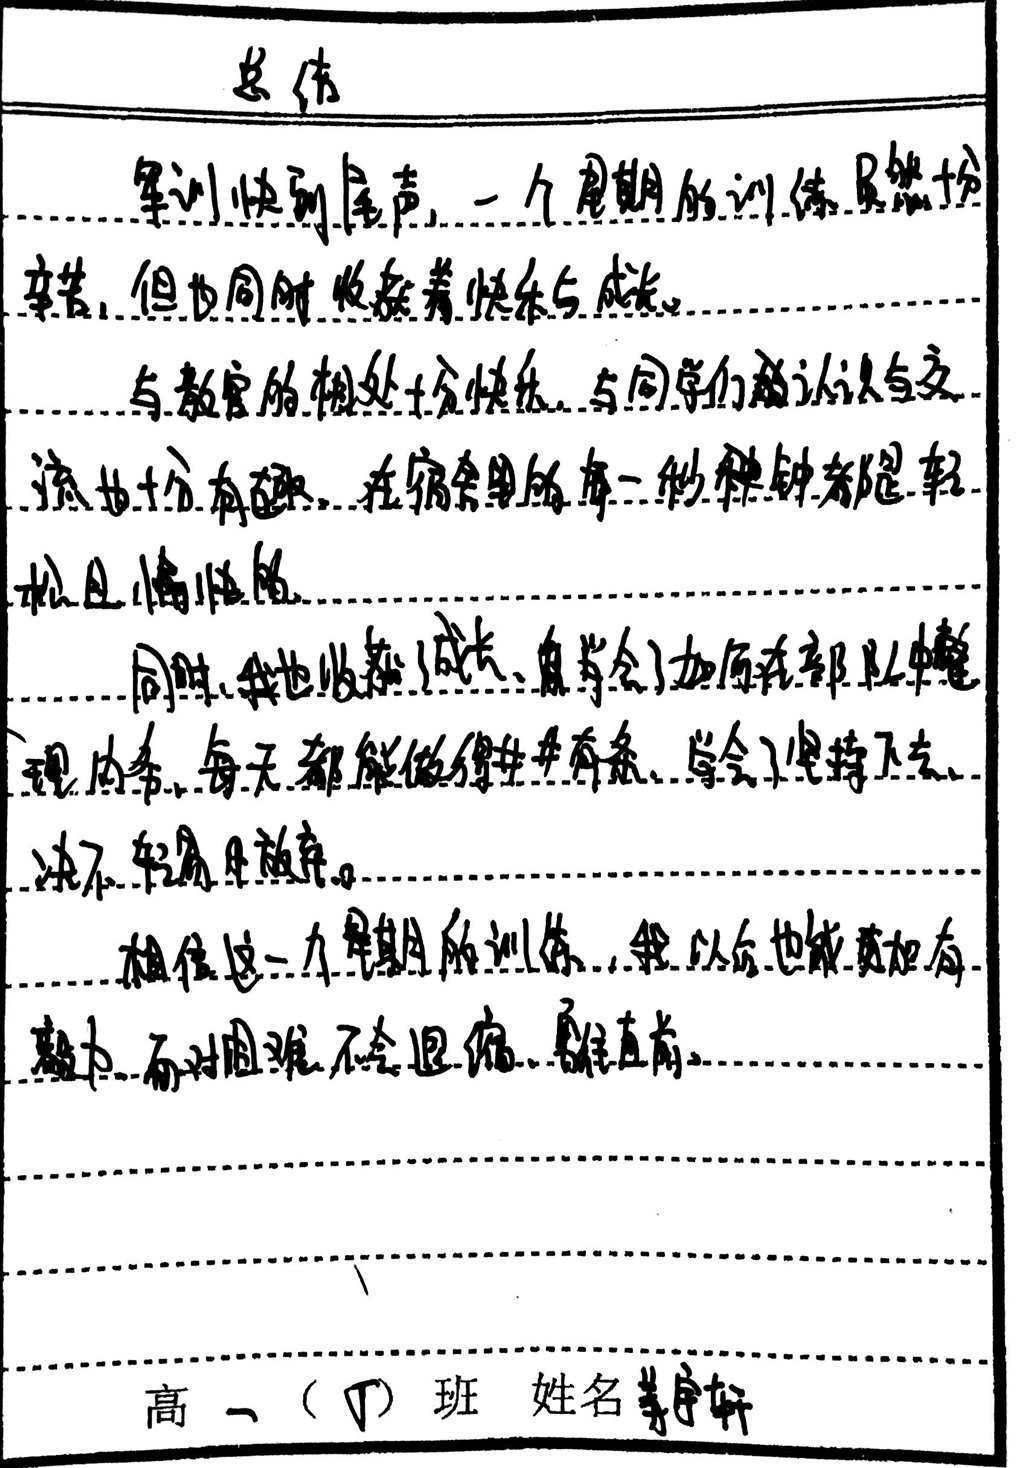 总结
军训快到尾声,一个星期的训练虽然十分
辛苦,但也同时收获着快乐与成长。
与教官的相处十分快乐,与同学们的认识与交
流也十分有趣,在宿舍里的每一秒种钟都是轻
松且愉快的。
同时,我也收获了成长,学会了如何在部队中整
理内务,每天都能做得井井有条,学会了坚持下去,
决不轻易放弃。
相信这一个星期的训练,我以后也能更加有
毅力,面对困难不会退缩,勇往直前。
高一( )班 姓名 宇轩